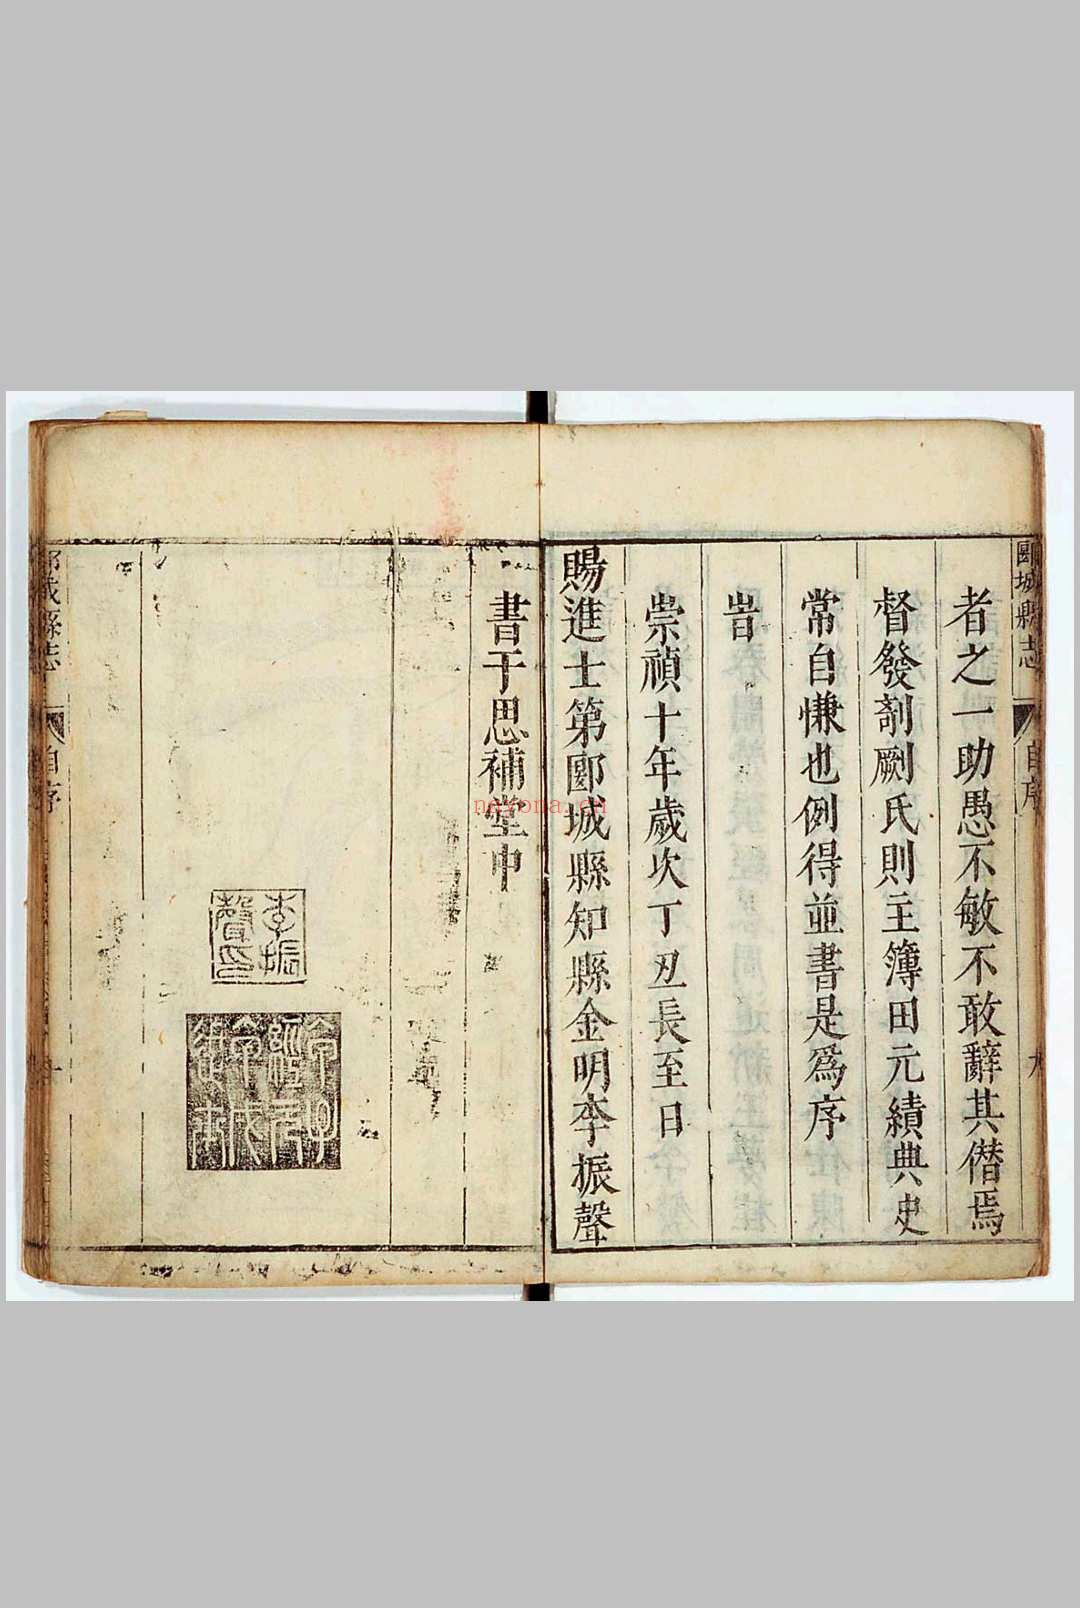 郾城縣志
自序
九
者之一助愚不敏不敢辭其僭焉
督發剞劂氏則主簿田元績典史
常自慊也例得並書是爲序
旹
崇禎十年歲次丁丑長至日
賜進士第郾城縣知縣金明李振聲
書于思補堂中
李振
聲印
城縣志
自序